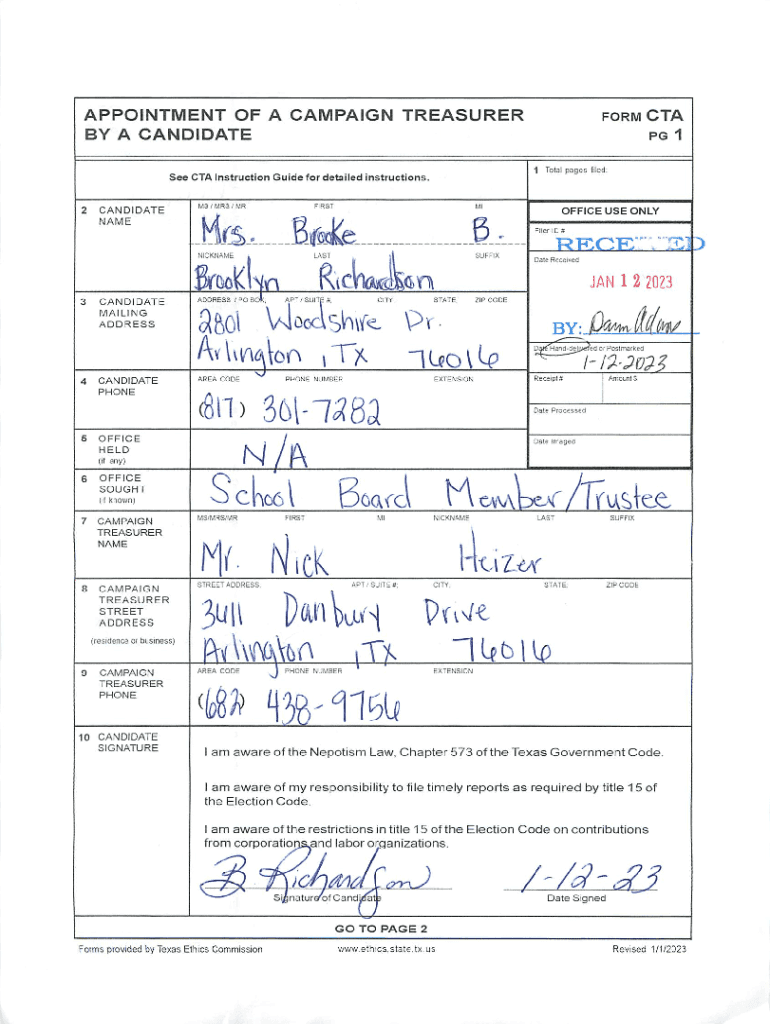 APPOINTMENT OF A CAMPAIGN TREASURER
BY A CANDIDATE
FORM CTA
PG 1
See CTA Instruction Guide for detailed instructions.
1 Total pages filed:
2 CANDIDATE
NAME
MS / MRS / MR FIRST MI
Mrs. Brooke B.
NICKNAME LAST SUFFIX
Brooklyn Richardson
OFFICE USE ONLY
Filer ID #
RECEIVED
Date Received
JAN 12 2023
BY:
Date Hand-delivered or Postmarked
1-12-2023
Receipt # Amount $
Date Processed
Date Imaged
3 CANDIDATE
MAILING
ADDRESS
ADDRESS / PO BOX; APT / SUITE #; CITY; STATE; ZIP CODE
2801 Woodshire Dr.
Arlington, TX 76016
4 CANDIDATE
PHONE
AREA CODE PHONE NUMBER EXTENSION
(817) 301-7282
5 OFFICE
HELD
(if any)
N/A
6 OFFICE
SOUGHT
(if known)
School Board Member/Trustee
7 CAMPAIGN
TREASURER
NAME
MS/MRS/MR FIRST MI NICKNAME LAST SUFFIX
Mr. Nick Heizer
8 CAMPAIGN
TREASURER
STREET
ADDRESS
(residence or business)
STREET ADDRESS; APT / SUITE #; CITY; STATE; ZIP CODE
3411 Danbury Drive
Arlington, TX 76016
9 CAMPAIGN
TREASURER
PHONE
AREA CODE PHONE NUMBER EXTENSION
(682) 438-9756
10 CANDIDATE
SIGNATURE
I am aware of the Nepotism Law, Chapter 573 of the Texas Government Code.
I am aware of my responsibility to file timely reports as required by title 15 of
the Election Code.
I am aware of the restrictions in title 15 of the Election Code on contributions
from corporations and labor organizations.
B Richardson 1-12-23
Signature of Candidate Date Signed
GO TO PAGE 2
Forms provided by Texas Ethics Commission www.ethics.state.tx.us Revised 1/1/2023